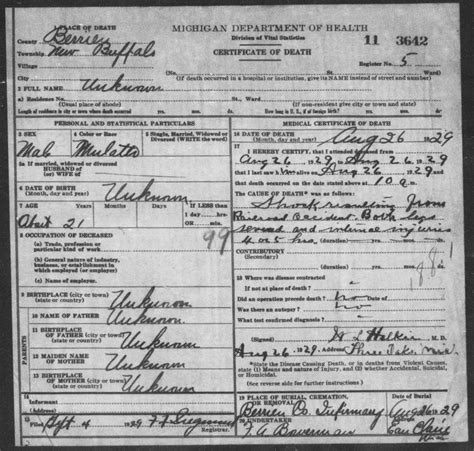 MICHIGAN DEPARTMENT OF HEALTH
Division of Vital Statistics
CERTIFICATE OF DEATH
11 3642
Register No. 5
1 PLACE OF DEATH
County Berrien
Township New Buffalo
Village
City
(If death occurred in a hospital or institution, give its NAME instead of street and number)
2 FULL NAME Unknown
a) Residence No.
(Usual place of abode)
(If non-resident give city or town and state)
Length of residence in city or town where death occurred yrs. mos. ds.
How long in U. S., if of foreign birth? yrs. mos. ds.
PERSONAL AND STATISTICAL PARTICULARS
3 SEX
Male
4 Color or Race
Mulatto
5 Single, Married, Widowed or Divorced (Write the word)
5a If married, widowed or divorced
HUSBAND of
(or) WIFE of
6 DATE OF BIRTH
(Month, day and year) Unknown
7 AGE Years Months Days
If LESS than
1 day hrs.
or min.
About 21
99
8 OCCUPATION OF DECEASED
(a) Trade, profession or
particular kind of work
(b) General nature of industry,
business, or establishment in
which employed (or employer)
(c) Name of Employer
9 BIRTHPLACE (city or town)
(State or country) Unknown
PARENTS
10 NAME OF FATHER Unknown
11 BIRTHPLACE
OF FATHER (city or town)
(State or country) Unknown
12 MAIDEN NAME
OF MOTHER Unknown
13 BIRTHPLACE
OF MOTHER (city or town)
(State or country) Unknown
14
Informant
(Address)
15
Filed Sept 4 1929
Registrar
MEDICAL CERTIFICATE OF DEATH
16 DATE OF DEATH
(Month, day and year) Aug 26 1929
17 I HEREBY CERTIFY, That I attended deceased from
Aug 26, 1929, to Aug 26, 1929
that I last saw him alive on Aug 26, 1929
and that death occurred on the date stated above at 10 a m.
The CAUSE OF DEATH* was as follows:
Shock resulting from
Railroad accident. Both legs
severed and internal injuries
4 or 5 hrs.
CONTRIBUTORY
(Secondary)
18 Where was disease contracted
if not at place of death?
Did an operation precede death? no Date of
Was there an autopsy? no
What test confirmed diagnosis?
(Signed) M. D.
Aug 26, 1929, Address Three Oaks, Mich
*State the Disease Causing Death, or in deaths from Violent Causes, state (1) Means and Nature of Injury, and (2) whether Accidental, Suicidal, or Homicidal.
(See reverse side for further instructions)
19 PLACE OF BURIAL, CREMATION, OR REMOVAL
Date of Burial
Berrien Co. Infirmary
1929
20 UNDERTAKER
F. A. Bowerman
Address
Eau Claire
Mich.